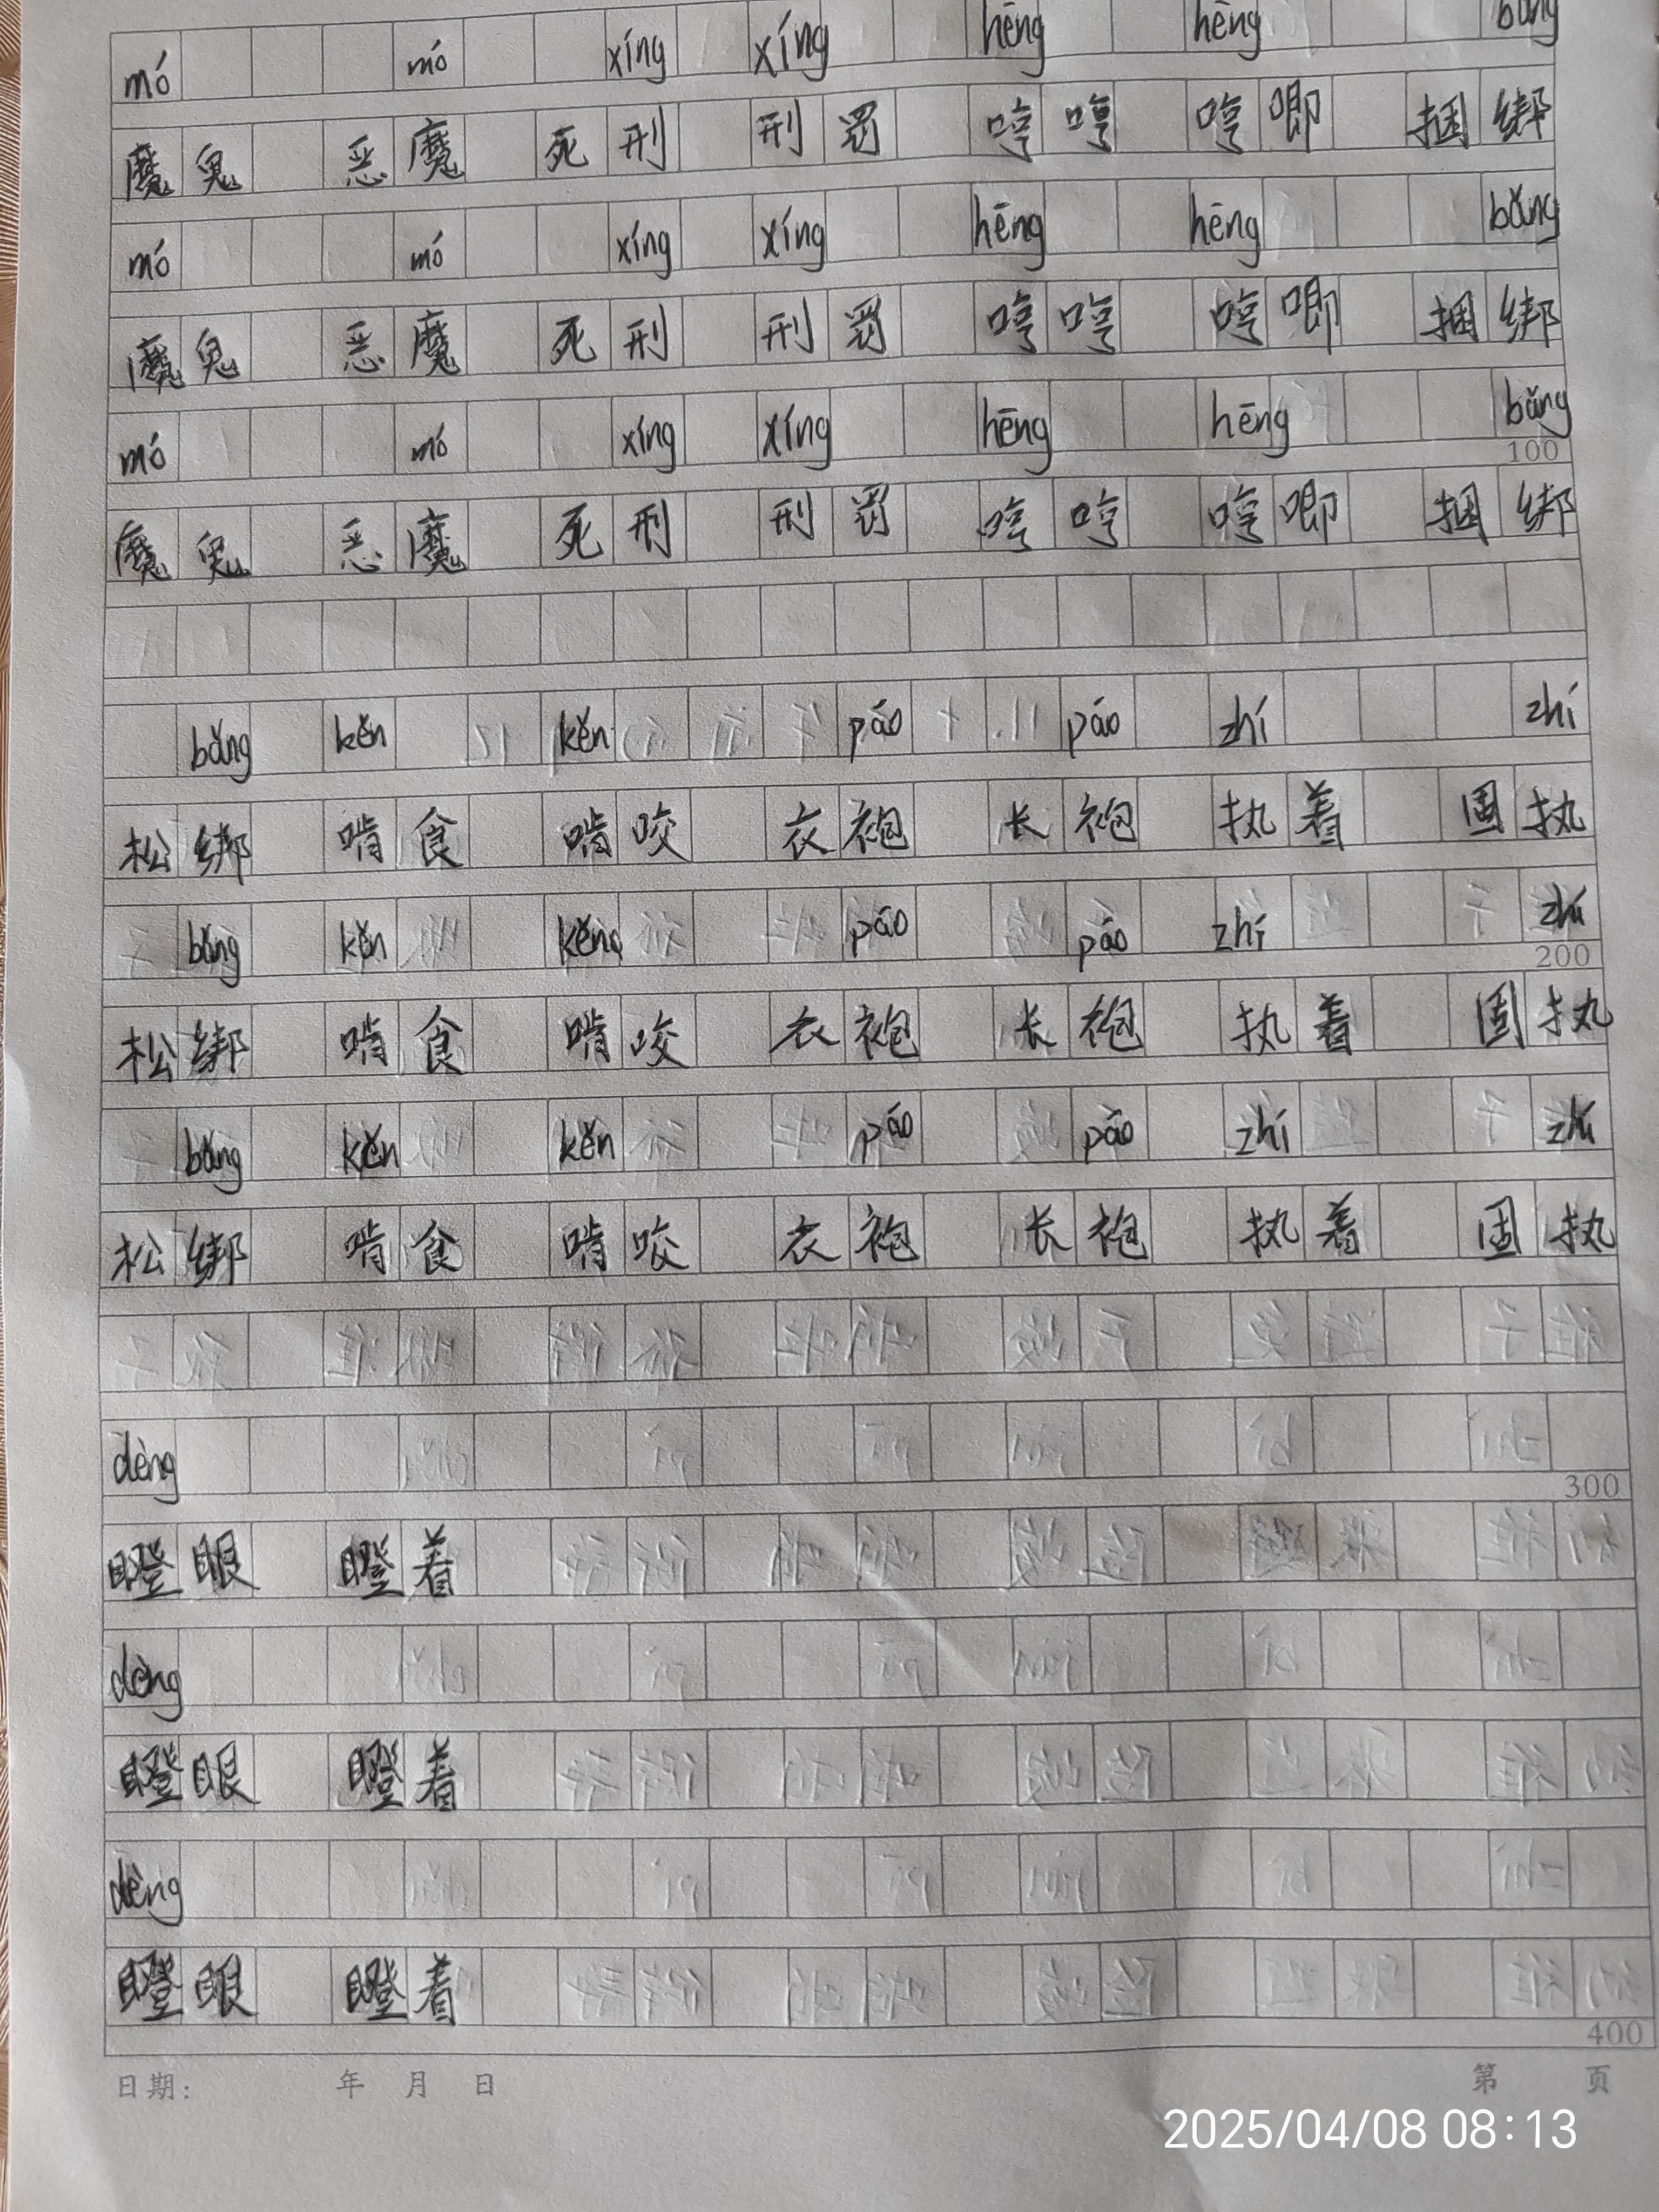 mó mó xíng xíng hēng hēng bǎng
魔鬼 恶魔 死刑 刑罚 哼哼 哼唧 捆绑
mó mó xíng xíng hēng hēng bǎng
魔鬼 恶魔 死刑 刑罚 哼哼 哼唧 捆绑
mó mó xíng xíng hēng hēng bǎng
100
魔鬼 恶魔 死刑 刑罚 哼哼 哼唧 捆绑
bǎng kěn kěn páo páo zhí zhí
松绑 啃食 啃咬 衣袍 长袍 执着 固执
bǎng kěn kěn páo páo zhí zhí
200
松绑 啃食 啃咬 衣袍 长袍 执着 固执
bǎng kěn kěn páo páo zhí zhí
松绑 啃食 啃咬 衣袍 长袍 执着 固执
dèng
300
瞪眼 瞪着
dèng
瞪眼 瞪着
dèng
瞪眼 瞪着
400
日期: 年 月 日 第 页
2025/04/08 08:13